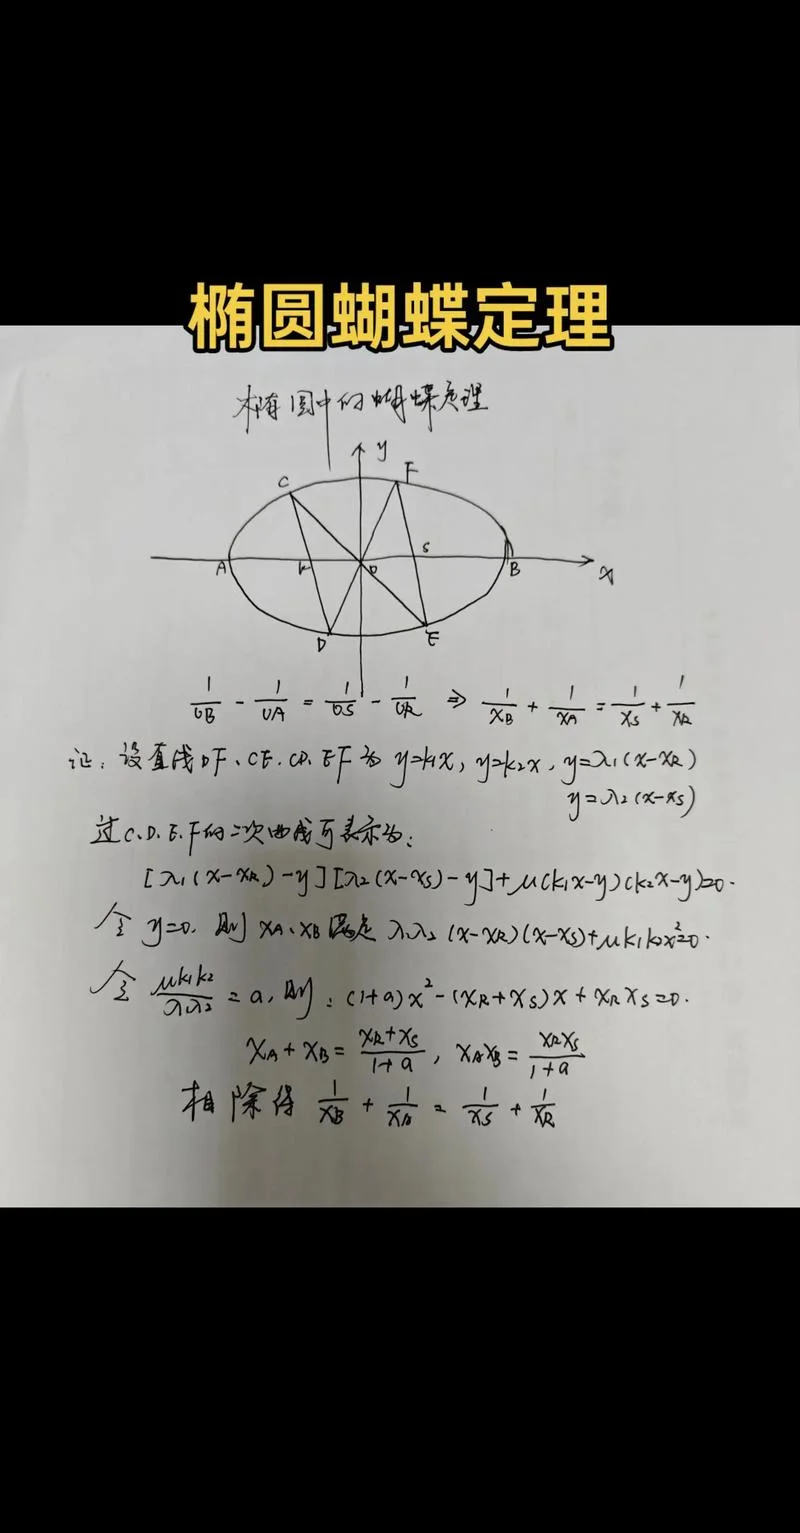 椭圆蝴蝶定理
椭圆中的蝴蝶定理
y
C F
A R O S B x
D E
1/OB - 1/OA = 1/OS - 1/OR ⇒ 1/x_B + 1/x_A = 1/x_S + 1/x_R
证: 设直线DF、CE.CD.EF为 y=k₁x, y=k₂x, y=λ₁(x-x_R)
y=λ₂(x-x_S)
过C.D.E.F的二次曲线可表示为:
[λ₁(x-x_R)-y][λ₂(x-x_S)-y]+μ(k₁x-y)(k₂x-y)=0.
令 y=0. 则 x_A、x_B 满足 λ₁λ₂(x-x_R)(x-x_S)+μk₁k₂x²=0.
令 μk₁k₂/λ₁λ₂ = a, 则: (1+a)x²-(x_R+x_S)x+x_R x_S=0.
x_A+x_B = x_R+x_S/1+a, x_A x_B = x_R x_S/1+a
相除得 1/x_B + 1/x_A = 1/x_S + 1/x_R